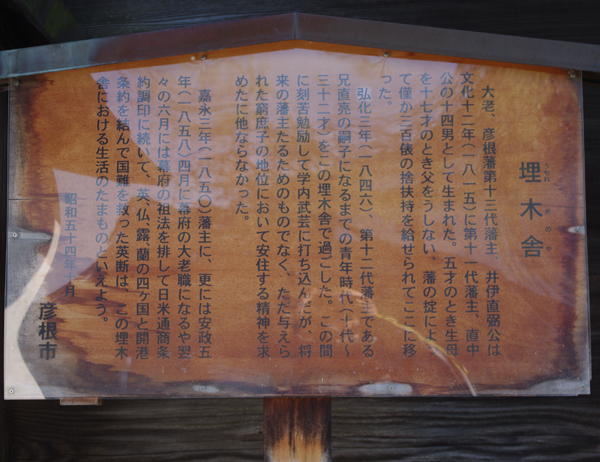 埋木舎
うもれ ぎ の や
大老、彦根藩第十三代藩主、井伊直弼公は
文化十二年（一八一五）に第十一代藩主、直中
公の十四男として生まれた。五才のとき生母
を十七才のとき父をうしない、藩の掟によっ
て僅か三百俵の捨扶持を給せられてここに移
った。
弘化三年（一八四六）、第十二代藩主である
兄直亮の嗣子になるまでの青年時代（十代～
三十二才）をこの埋木舎で過ごした。この間
に刻苦勉励して学内武芸に打ち込んだが、将
来の藩主たるためのものでなく、ただ与えら
れた窮庶子の地位において安住する精神を求
めたに他ならなかった。
嘉永三年（一八五〇）藩主に、更には安政五
年（一八五八）四月に幕府の大老職になるや翌
々の六月には幕府の祖法を排して日米通商条
約調印に続いて、英、仏、露、蘭の四ヶ国と開港
条約を結んで国難を救った英断は、この埋木
舎における生活のたまものといえよう。
昭和五十四年十月
彦根市